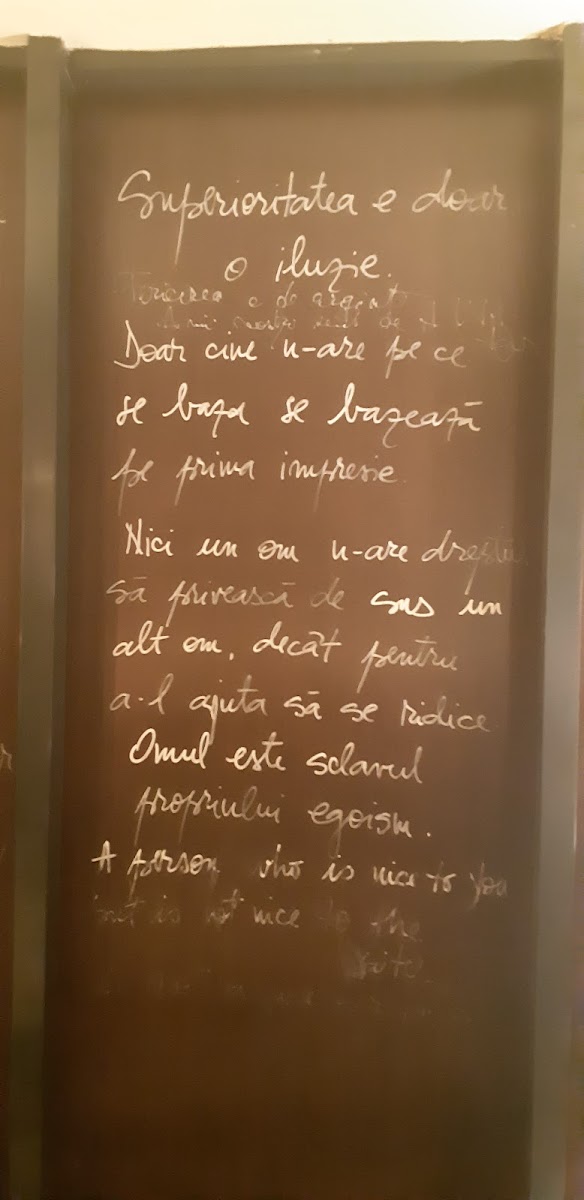 Superioritatea e doar
o iluzie.
Fericirea e de argint
de
Doar cine n-are pe ce
se baza se bazează
pe prima impresie.
Nici un om n-are dreptul
să privească de sus un
alt om, decât pentru
a-l ajuta să se ridice
Omul este sclavul
propriului egoism.
A person who is nice to you
but is not nice to the